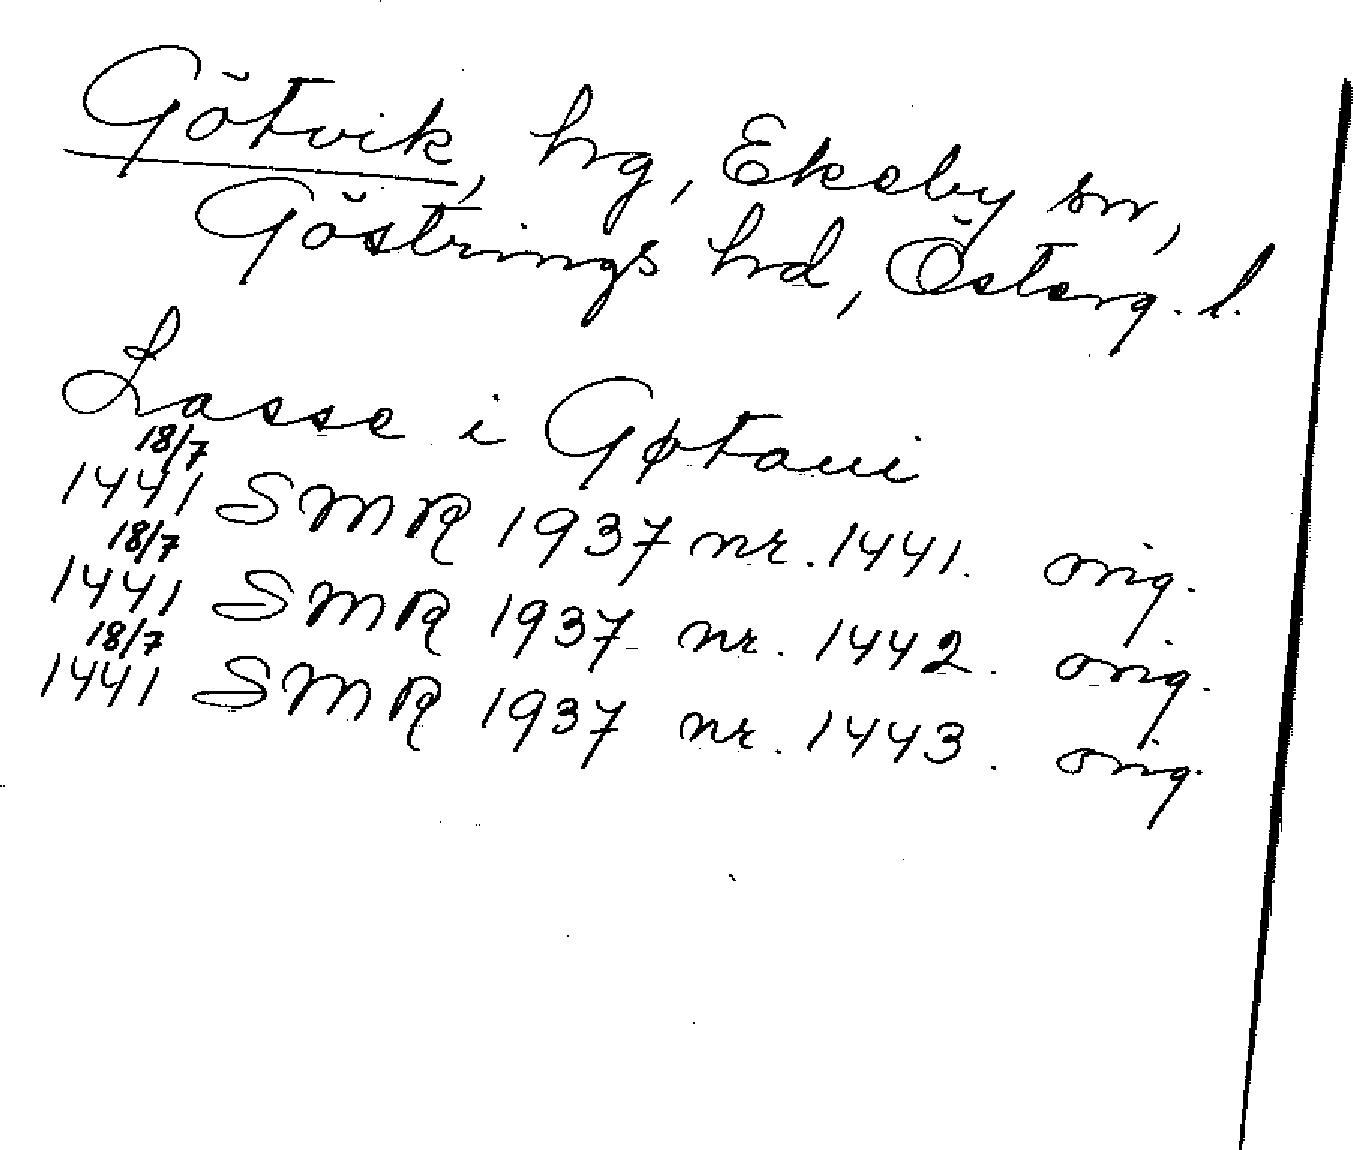 Götvik, hg, Ekeby sn,
Göstrings hd, Österg. l.
Lasse i Gøtaui
18/7
1441 SMR 1937 nr. 1441. orig.
18/7
1441 SMR 1937 nr. 1442. orig.
18/7
1441 SMR 1937 nr. 1443. orig.